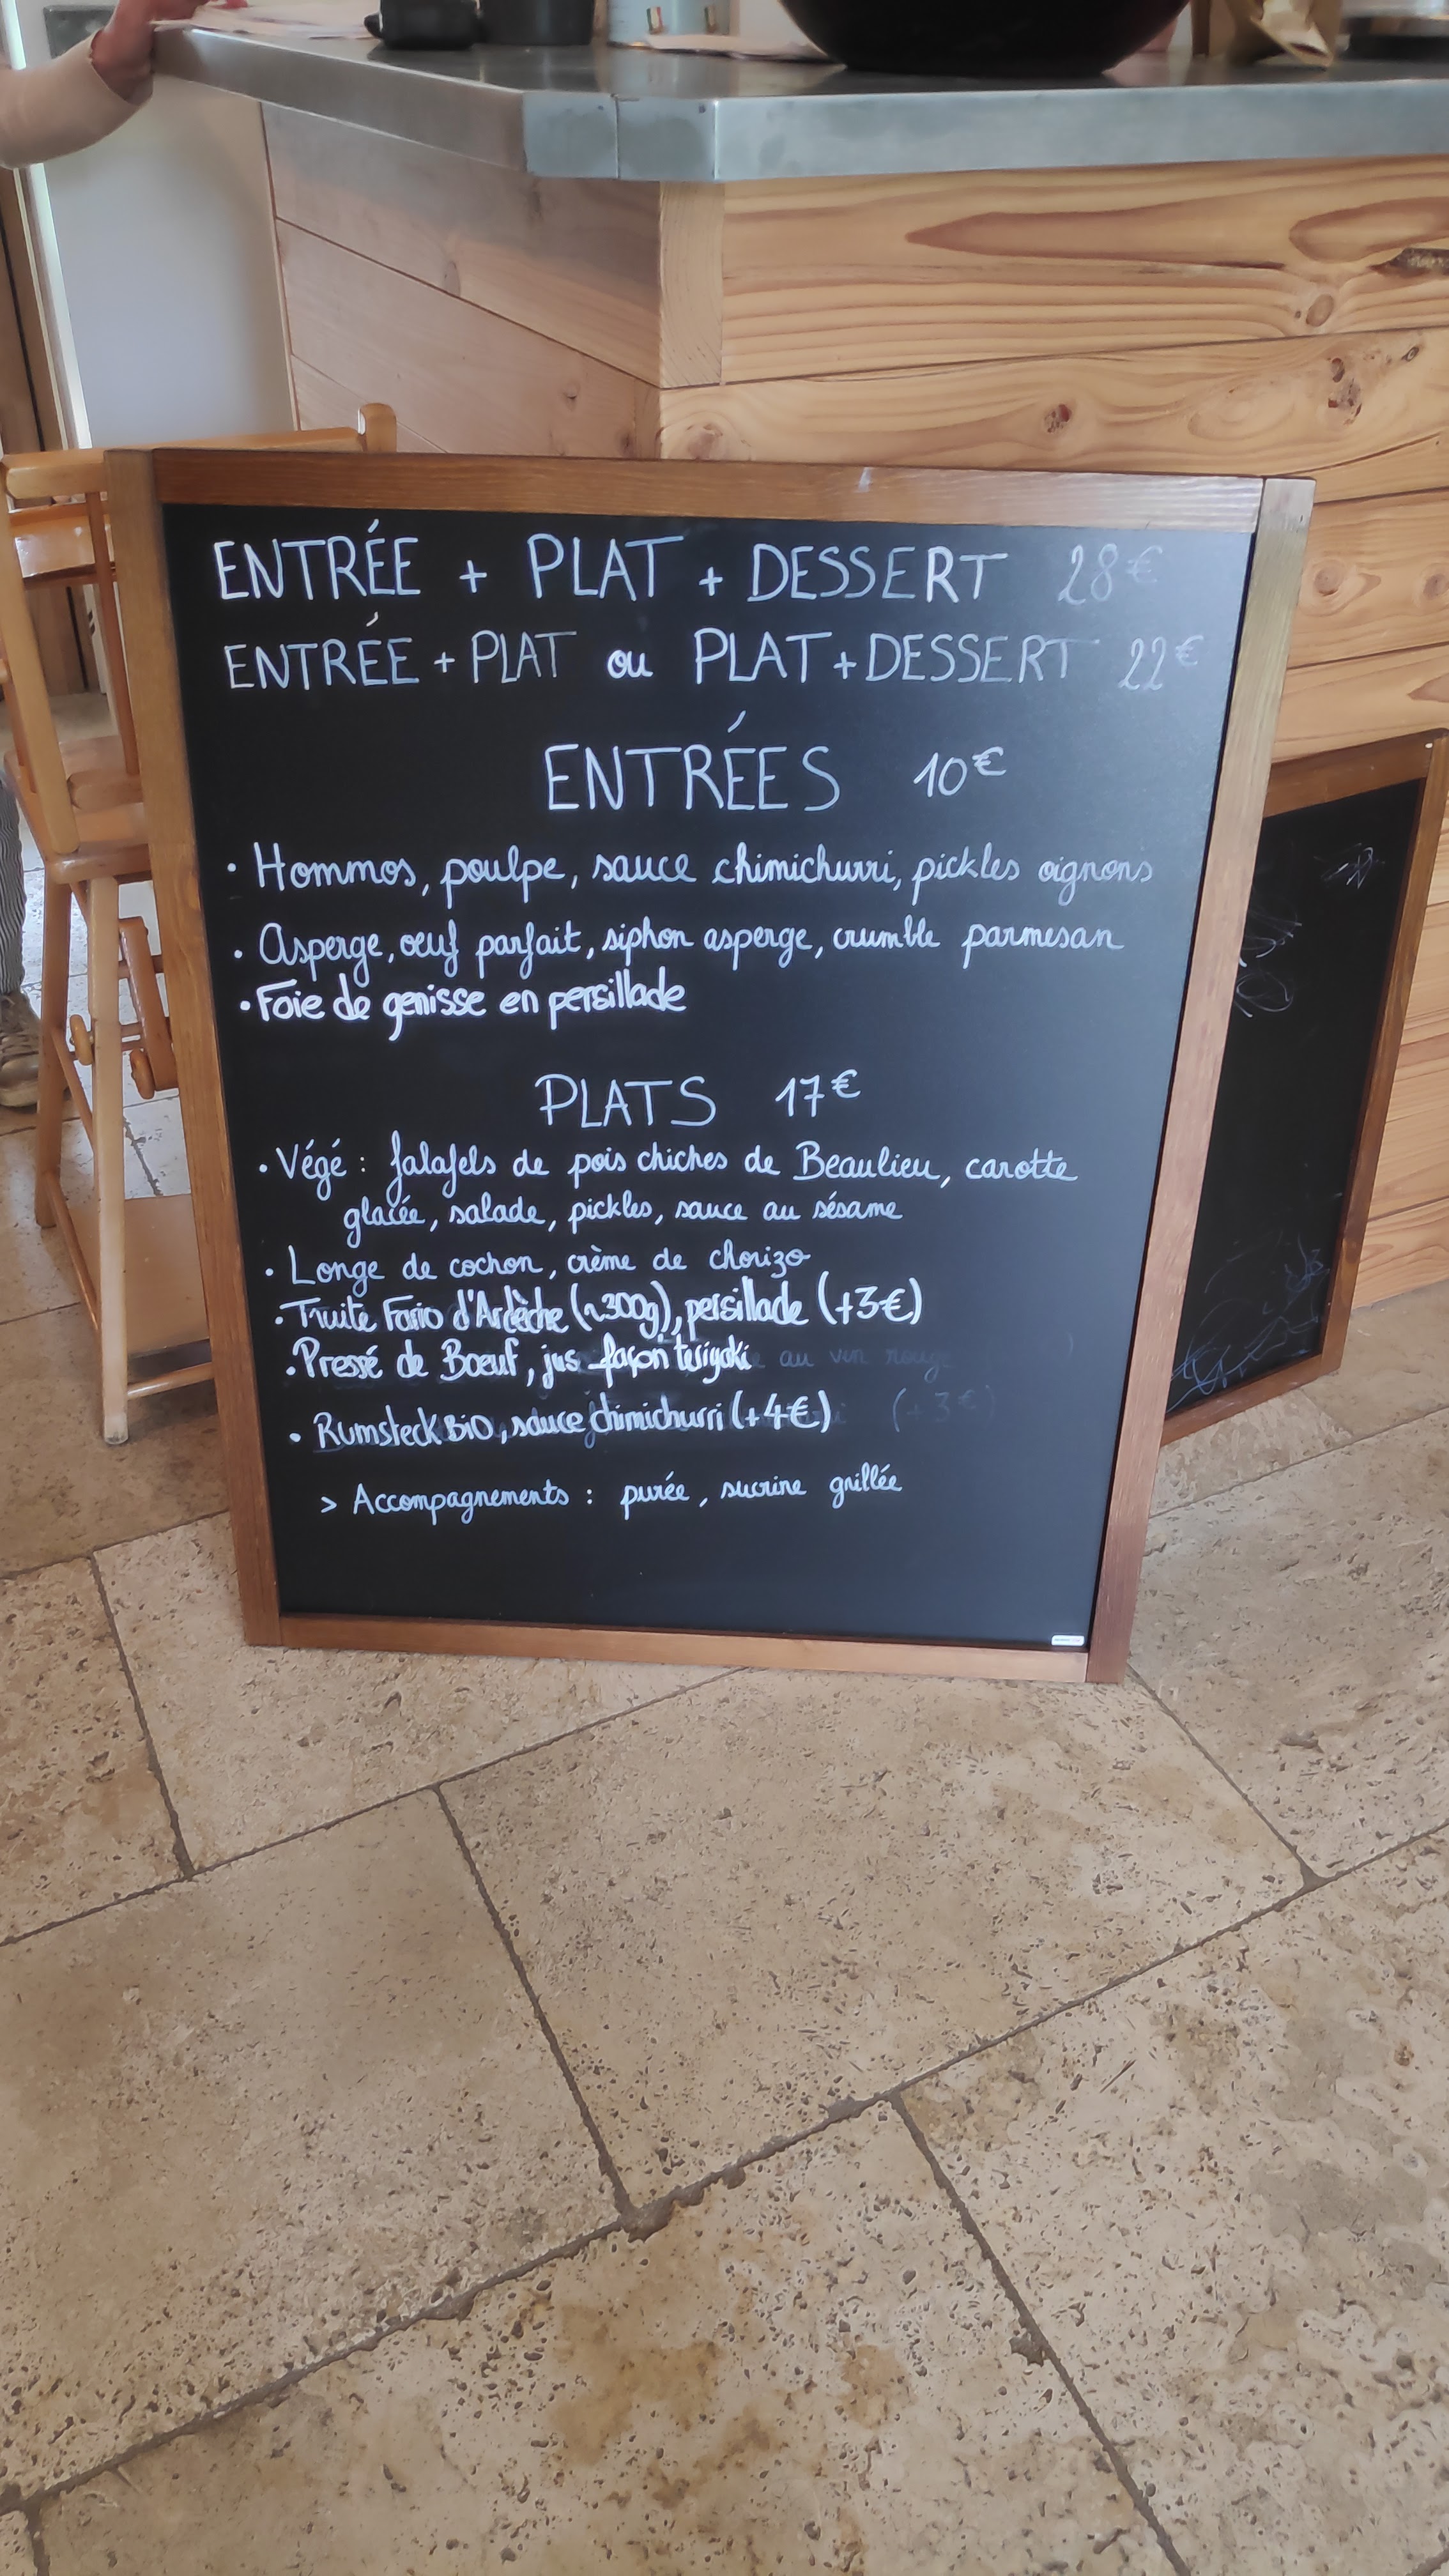 ENTRÉE + PLAT + DESSERT 28€
ENTRÉE + PLAT ou PLAT + DESSERT 22€
ENTRÉES 10€
• Hommos, poulpe, sauce chimichurri, pickles oignons
• Asperge, oeuf parfait, siphon asperge, crumble parmesan
• Foie de genisse en persillade
PLATS 17€
• Végé : falafels de pois chiches de Beaulieu, carotte
glacée, salade, pickles, sauce au sésame
• Longe de cochon, crème de chorizo
• Truite Fario d'Ardèche (~300g), persillade (+3€)
• Pressé de Boeuf, jus façon teriyaki au vin rouge
• Rumsteck BIO, sauce chimichurri (+4€) (+3€)
> Accompagnements : purée, sucrine grillée